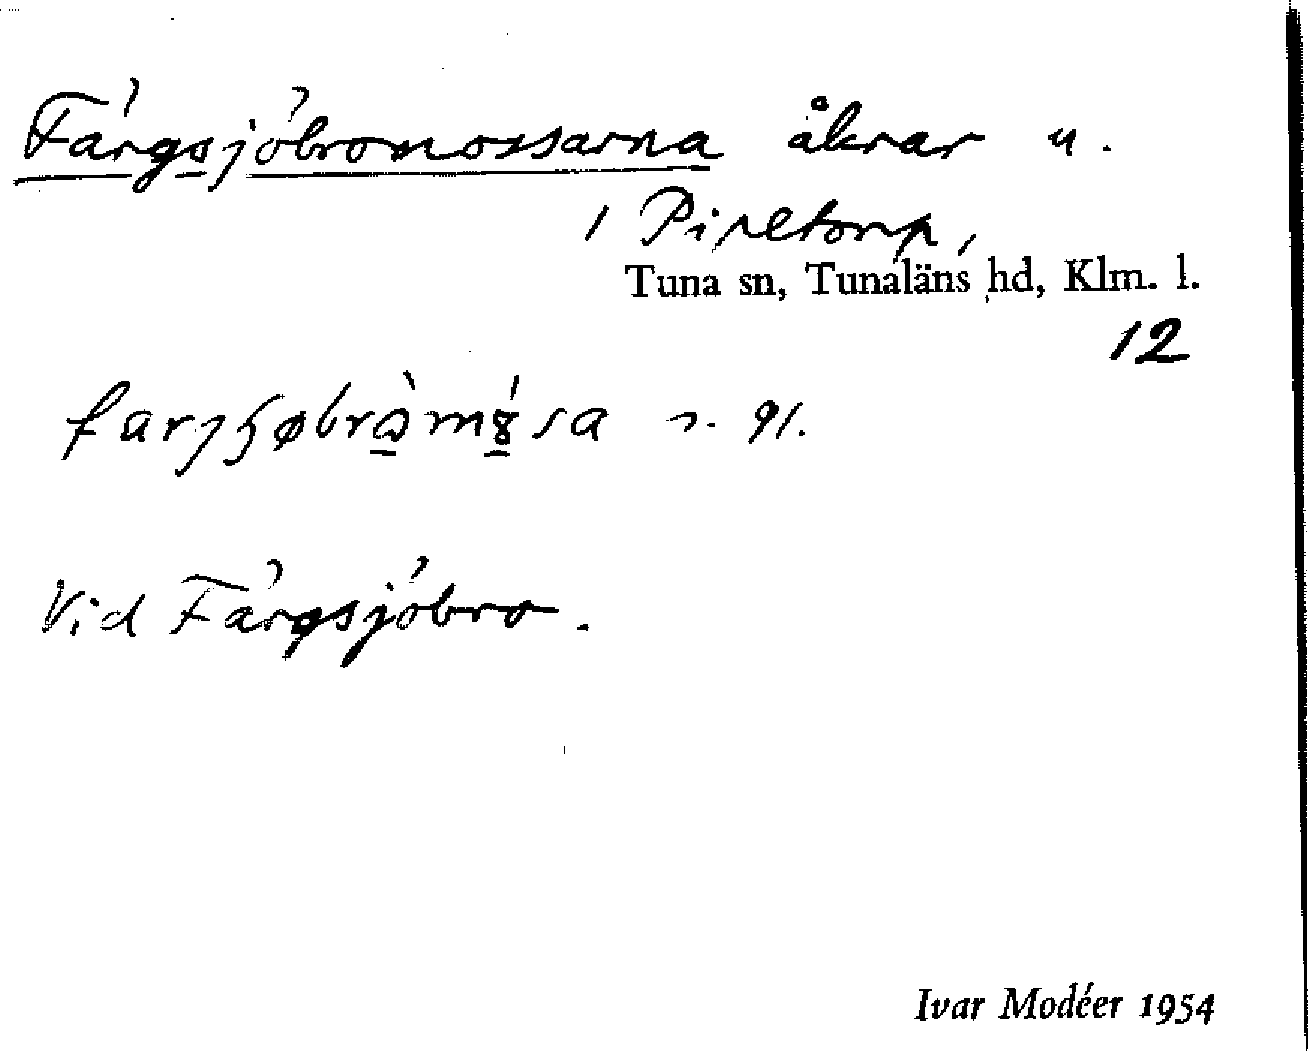 Färgsjöbromossarna åkrar u.
1 Pipetorp,
Tuna sn, Tunaläns hd, Klm. l.
12
91.
Vid Färgsjöbro.
Ivar Modéer 1954